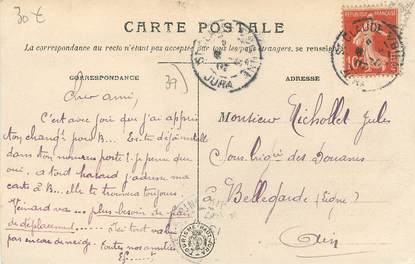 30€
CARTE POSTALE
La correspondance au recto n'étant pas acceptée par tous les pays étrangers, se renseigner
CORRESPONDANCE
ADRESSE
39
JURA
Cher ami,
C'est avec joie que j'ai appris
ton changt pour B... Es-tu déjà installé
dans ton nouveau poste? je pense que
oui, à tout hasard j'adresse ma
carte à B... elle te trouvera toujours.
va... plus besoin de
déplacement
Toutes nos amitiés
Monsieur Nichollet Jules
Sous brigr des Douanes
à Bellegarde (Ligne)
Ain